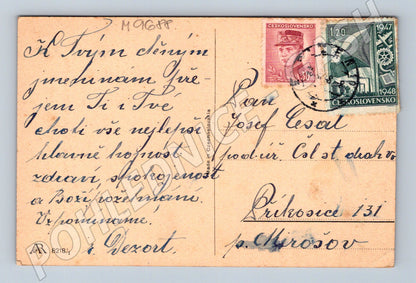 M 9688
K Tvým děným
jmeninám Ti přejem
Ti i Tvé
choti vše nejlepší
hlavně hojnost
zdraví spokojenost
a Boží požehnání.
Vzpomínáme.
Dezort.
ČESKOSLOVENSKO
1.20 1947
1948
ČESKOSLOVENSKO
Pan
Josef Cesal
pod úř. Čsl. st. drah v.v.
Příkosice 131
p. Mirošov
AR 8218/
POHLEDNICE